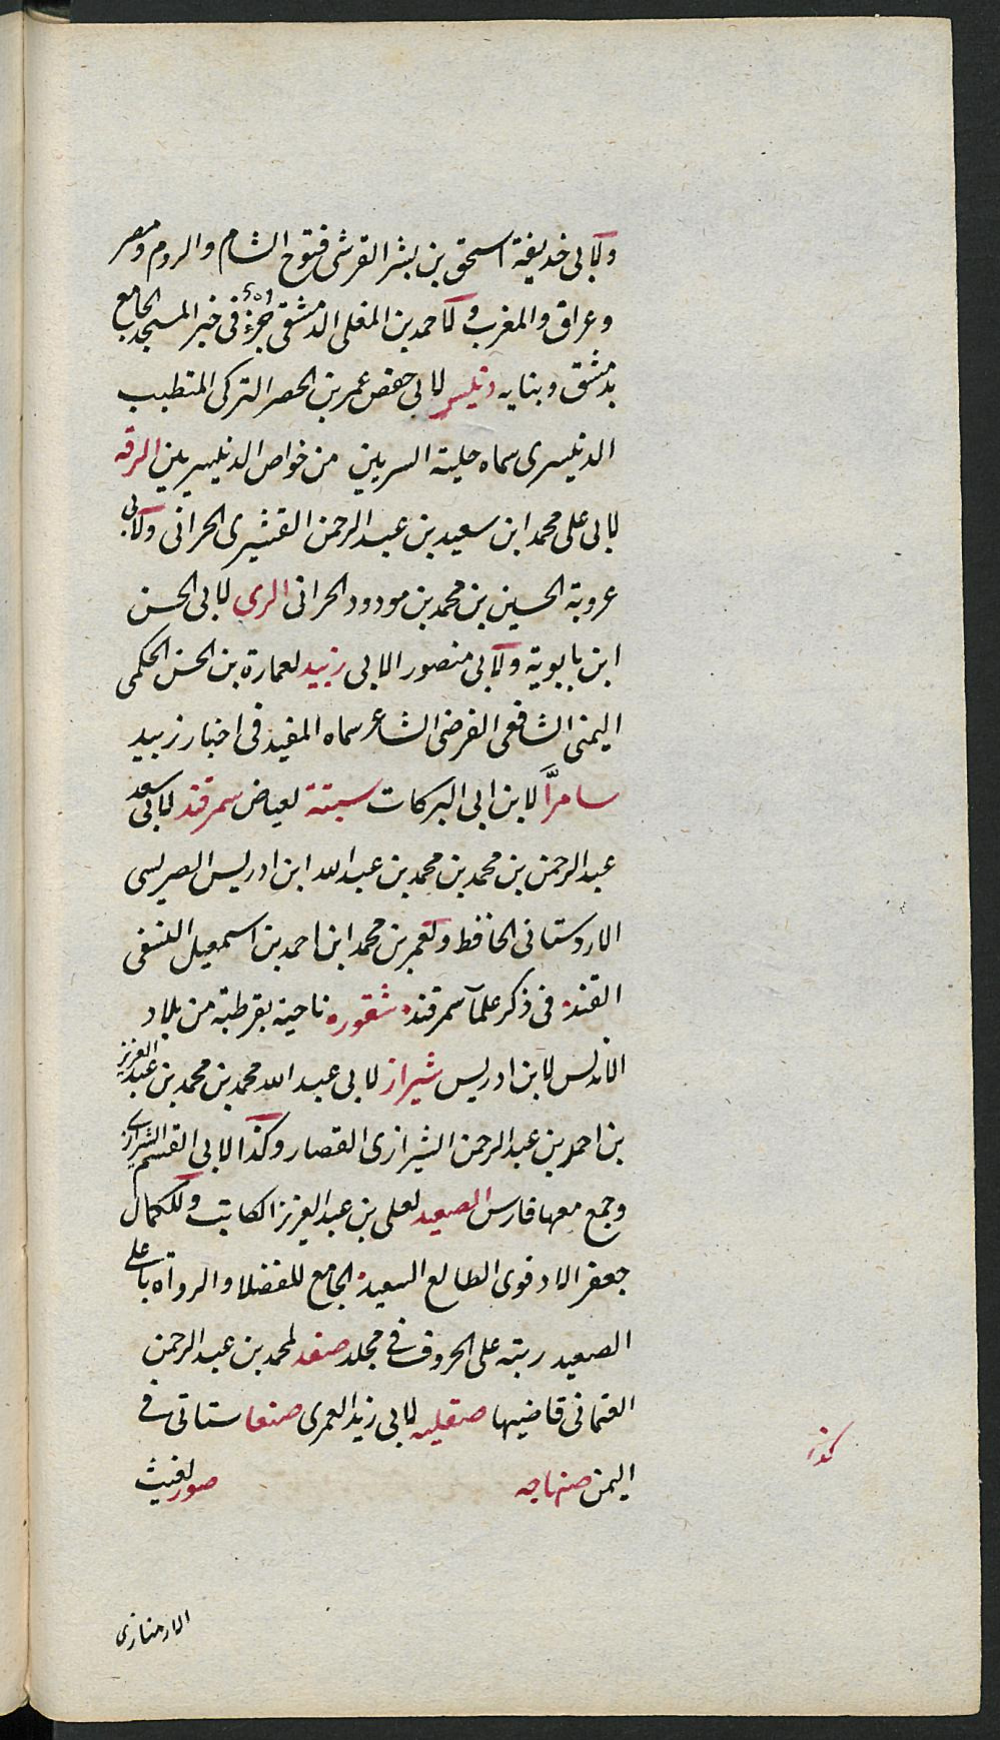 ولابى خديفة اسحق بن بشر القرشى فتوح الشام والروم ومصر
وعراق والمغرب ولاحمد بن المعلى الدمشقى جزء فى خبر المسجد الجامع
بدمشق وبنايه دنيسر لابى حفص عمر بن الحصر التركى المتطبب
الدنيسرى سماه حلية السريين من خواص الدنيسريين الرقه
لابى على محمد ابن سعيد بن عبد الرحمن القشيرى الحرانى ولابى
عروبة الحسين بن محمد بن مودود الحرانى الرى لابى الحسن
ابن بابوية ولابى منصور الابى زبيد لعمارة بن الحسن الحكمى
اليمنى الشافعى الفرضى الشاعر سماه المفيد فى اخبار زبيد
سامرّا لابن ابى البركات سبتة لعياض سمرقند لابى سعد
عبد الرحمن بن محمد بن محمد بن عبد الله ابن ادريس
الاردستانى الحافظ ولعمر بن محمد ابن احمد بن اسمعيل النسفى
القند فى ذكر علمآ سمرقند شقوره ناحية بقرطبة من بلاد
الاندلس لابن ادريس شيراز لابى عبد الله محمد بن محمد بن عبد العزيز
بن احمد بن عبد الرحمن الشيرازى القصار وكذا لابى القسم الشيرازى
وجمع معها فارس الصعيد لعلى بن عبد العزيز الكاتب وللكمال
جعفر الادفوى الطالع السعيد الجامع للفضلا والرواه باعلى
الصعيد رتبه على الحروف فى مجلد صفد لمحمد بن عبد الرحمن
العثمانى قاضيها صقليه لابى زيد العمرى صنعا ستاتى فى
اليمن صنهاجه صور لغيث
كذا
الارمنازى